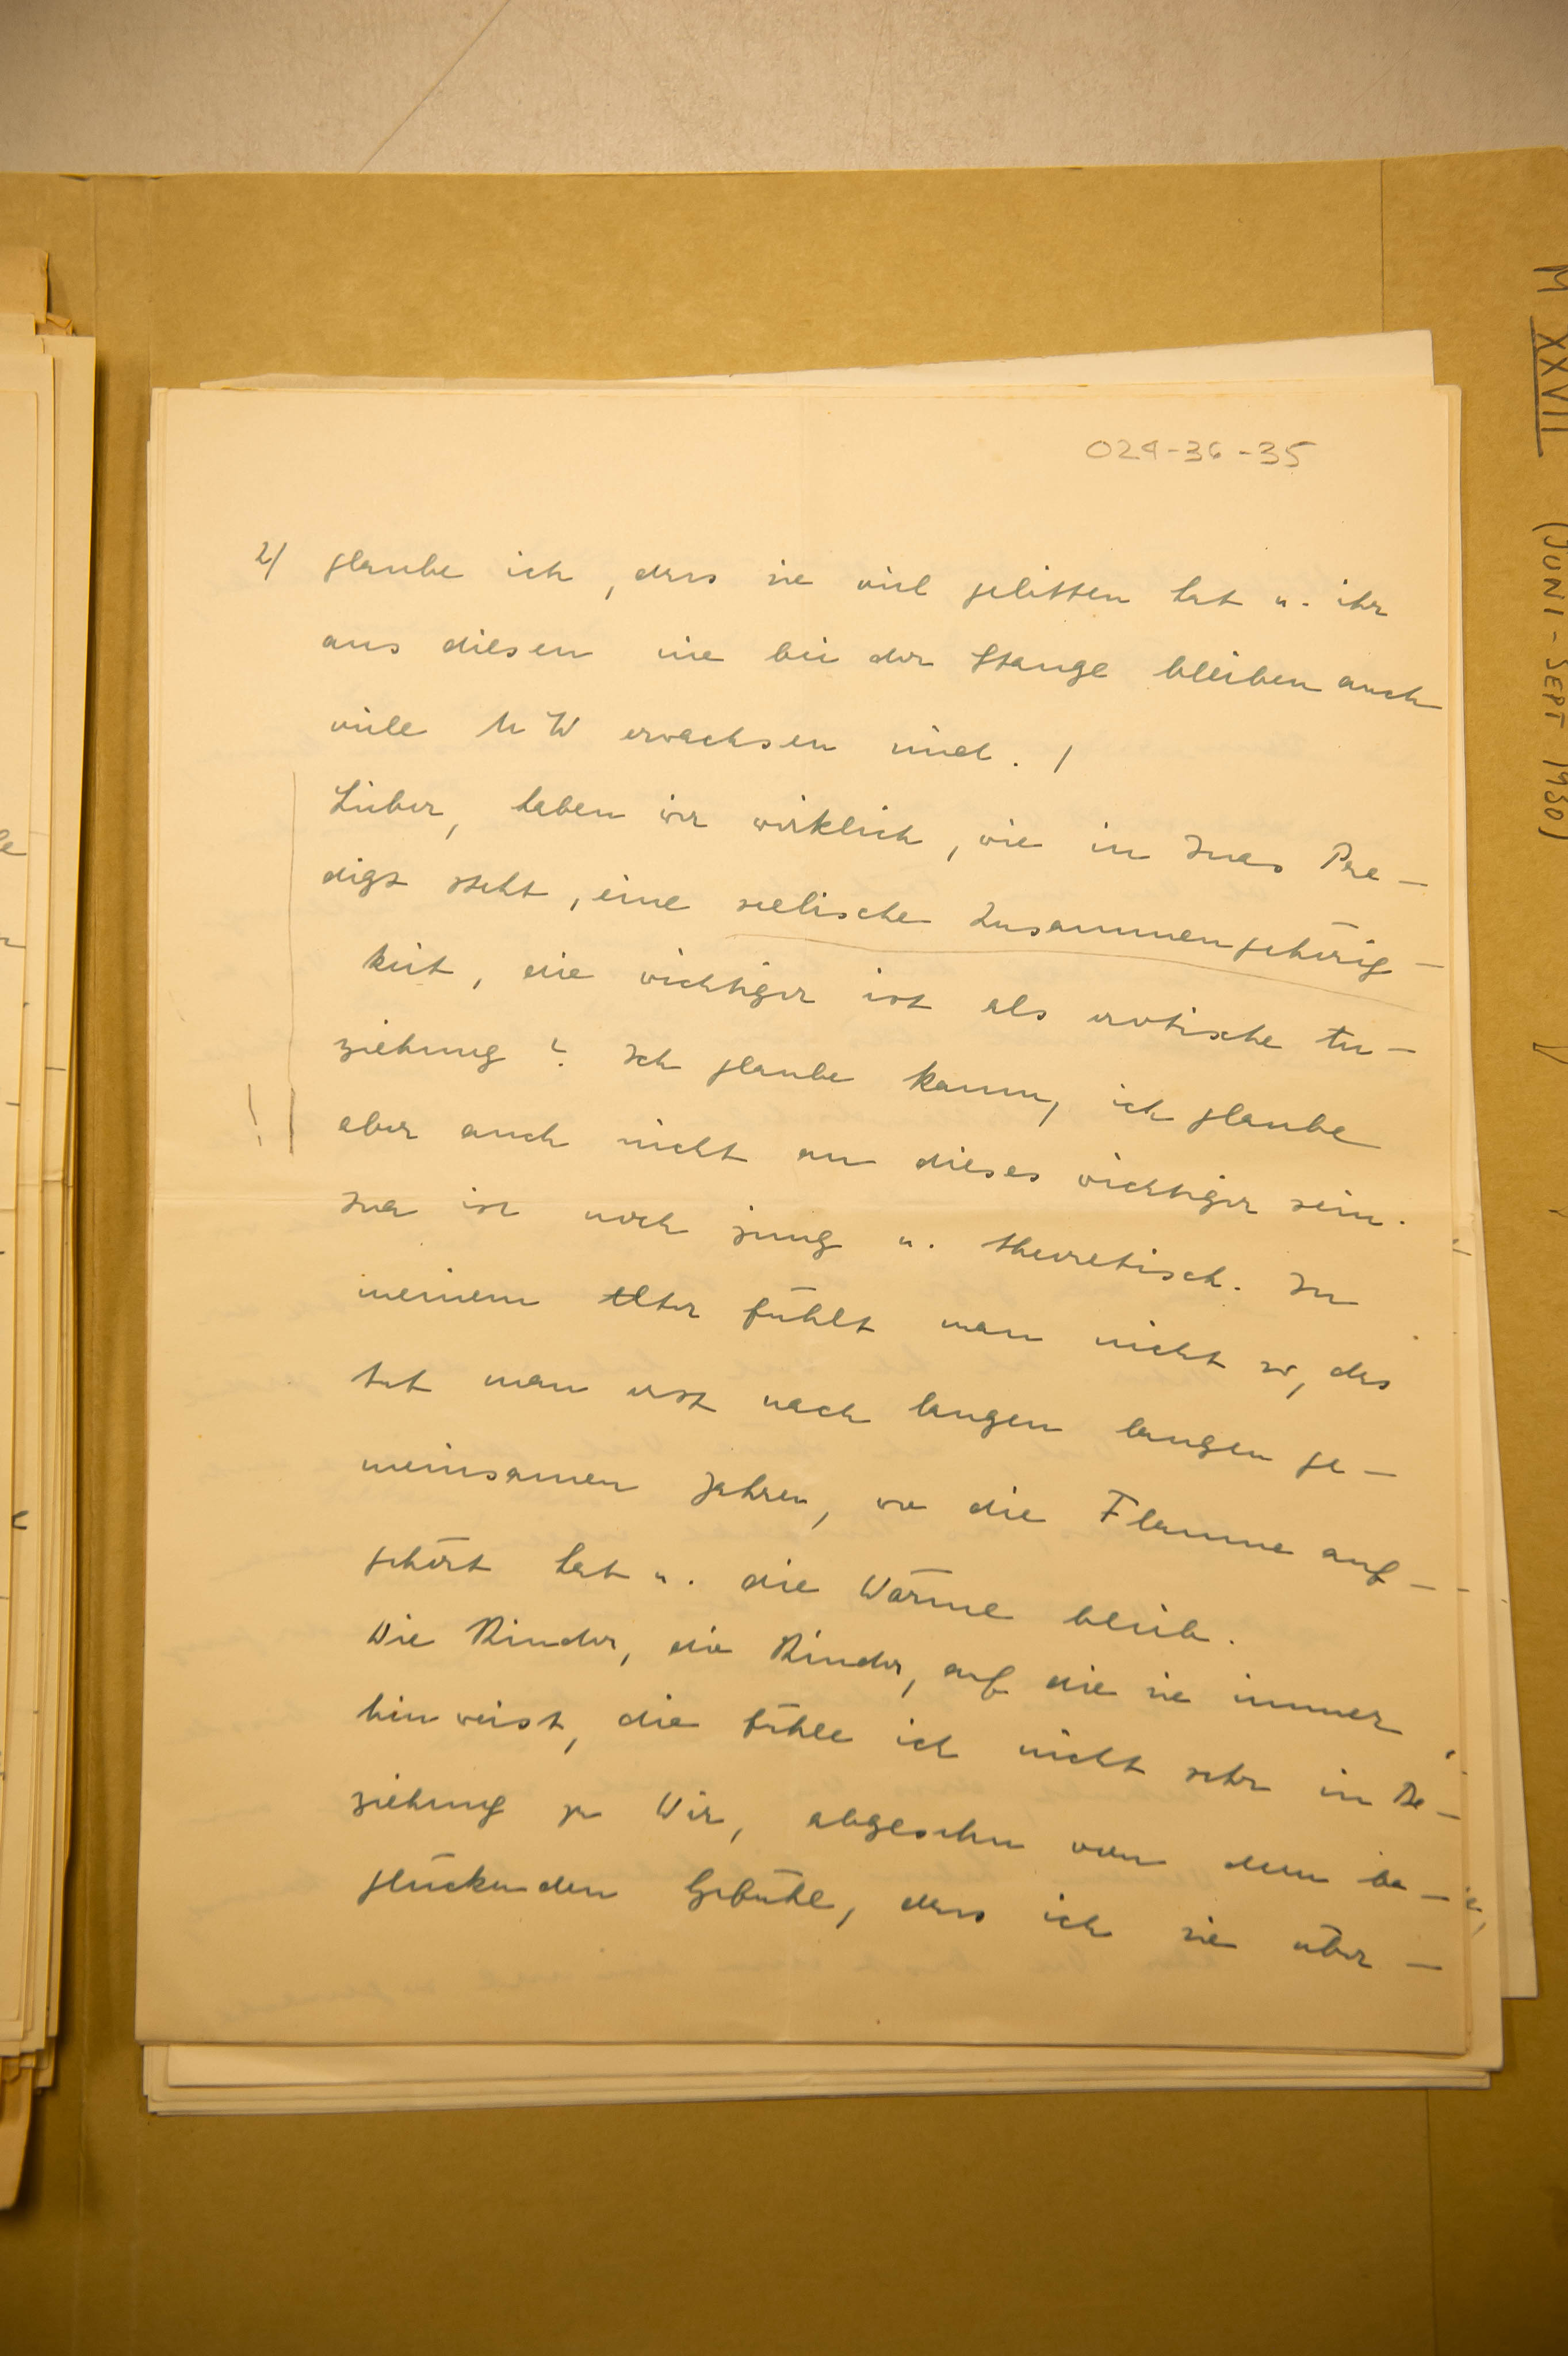 024-36-35
2/ glaube ich, dass sie viel gelitten hat u. ihr
aus diesem nie bei der Stange bleiben auch
viele MW erwachsen sind. /
Lieber, haben wir wirklich, wie in Inas Pre-
digt steht, eine seelische Zusammengehörig-
keit, die wichtiger ist als erotische An-
ziehung? Ich glaube kaum, ich glaube
aber auch nicht an dieses wichtiger sein.
Ina ist noch jung u. theoretisch. In
meinem Alter fühlt man nicht so, das
tut man erst nach langen langen ge-
meinsamen Jahren, wo die Flamme auf-
gehört hat u. die Wärme bleib.
Die Kinder, die Kinder, auf die sie immer
hinweist, die fühle ich nicht sehr in Be-
ziehung zu Dir, abgesehn von dem be-
glückenden Gefühl, dass ich sie über-
!
M XXVII (JUNI-SEPT 1930)